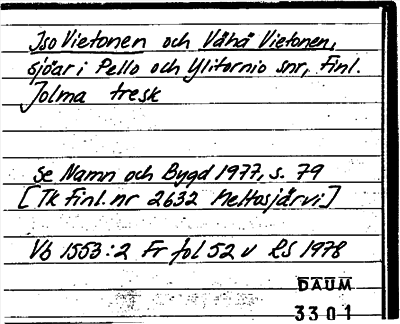 Iso Vietonen och Vähä Vietonen,
sjöar i Pello och Ylitornio snr, Finl.
Jolma tresk
Se Namn och Bygd 1977, s. 79
[Tk Finl. nr 2632 Meltosjärvi]
Vb 1553:2 Fr fol 52 v LS 1978
DAUM
3301